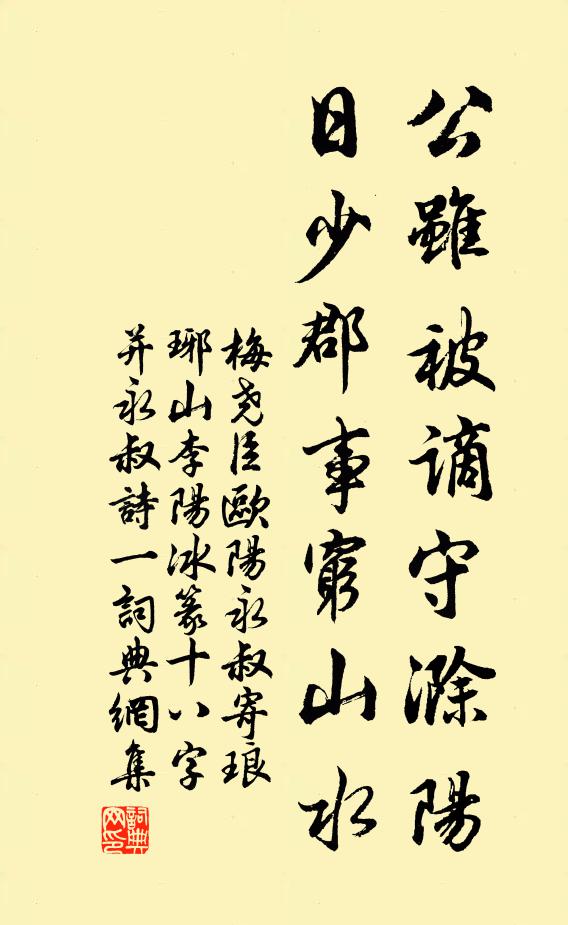 公雖被謫守滁陽
日少郡事窮山水
梅堯臣歐陽永叔寄琅
琊山李陽冰篆十八字
并永叔詩一詞典網集
詞典
网印